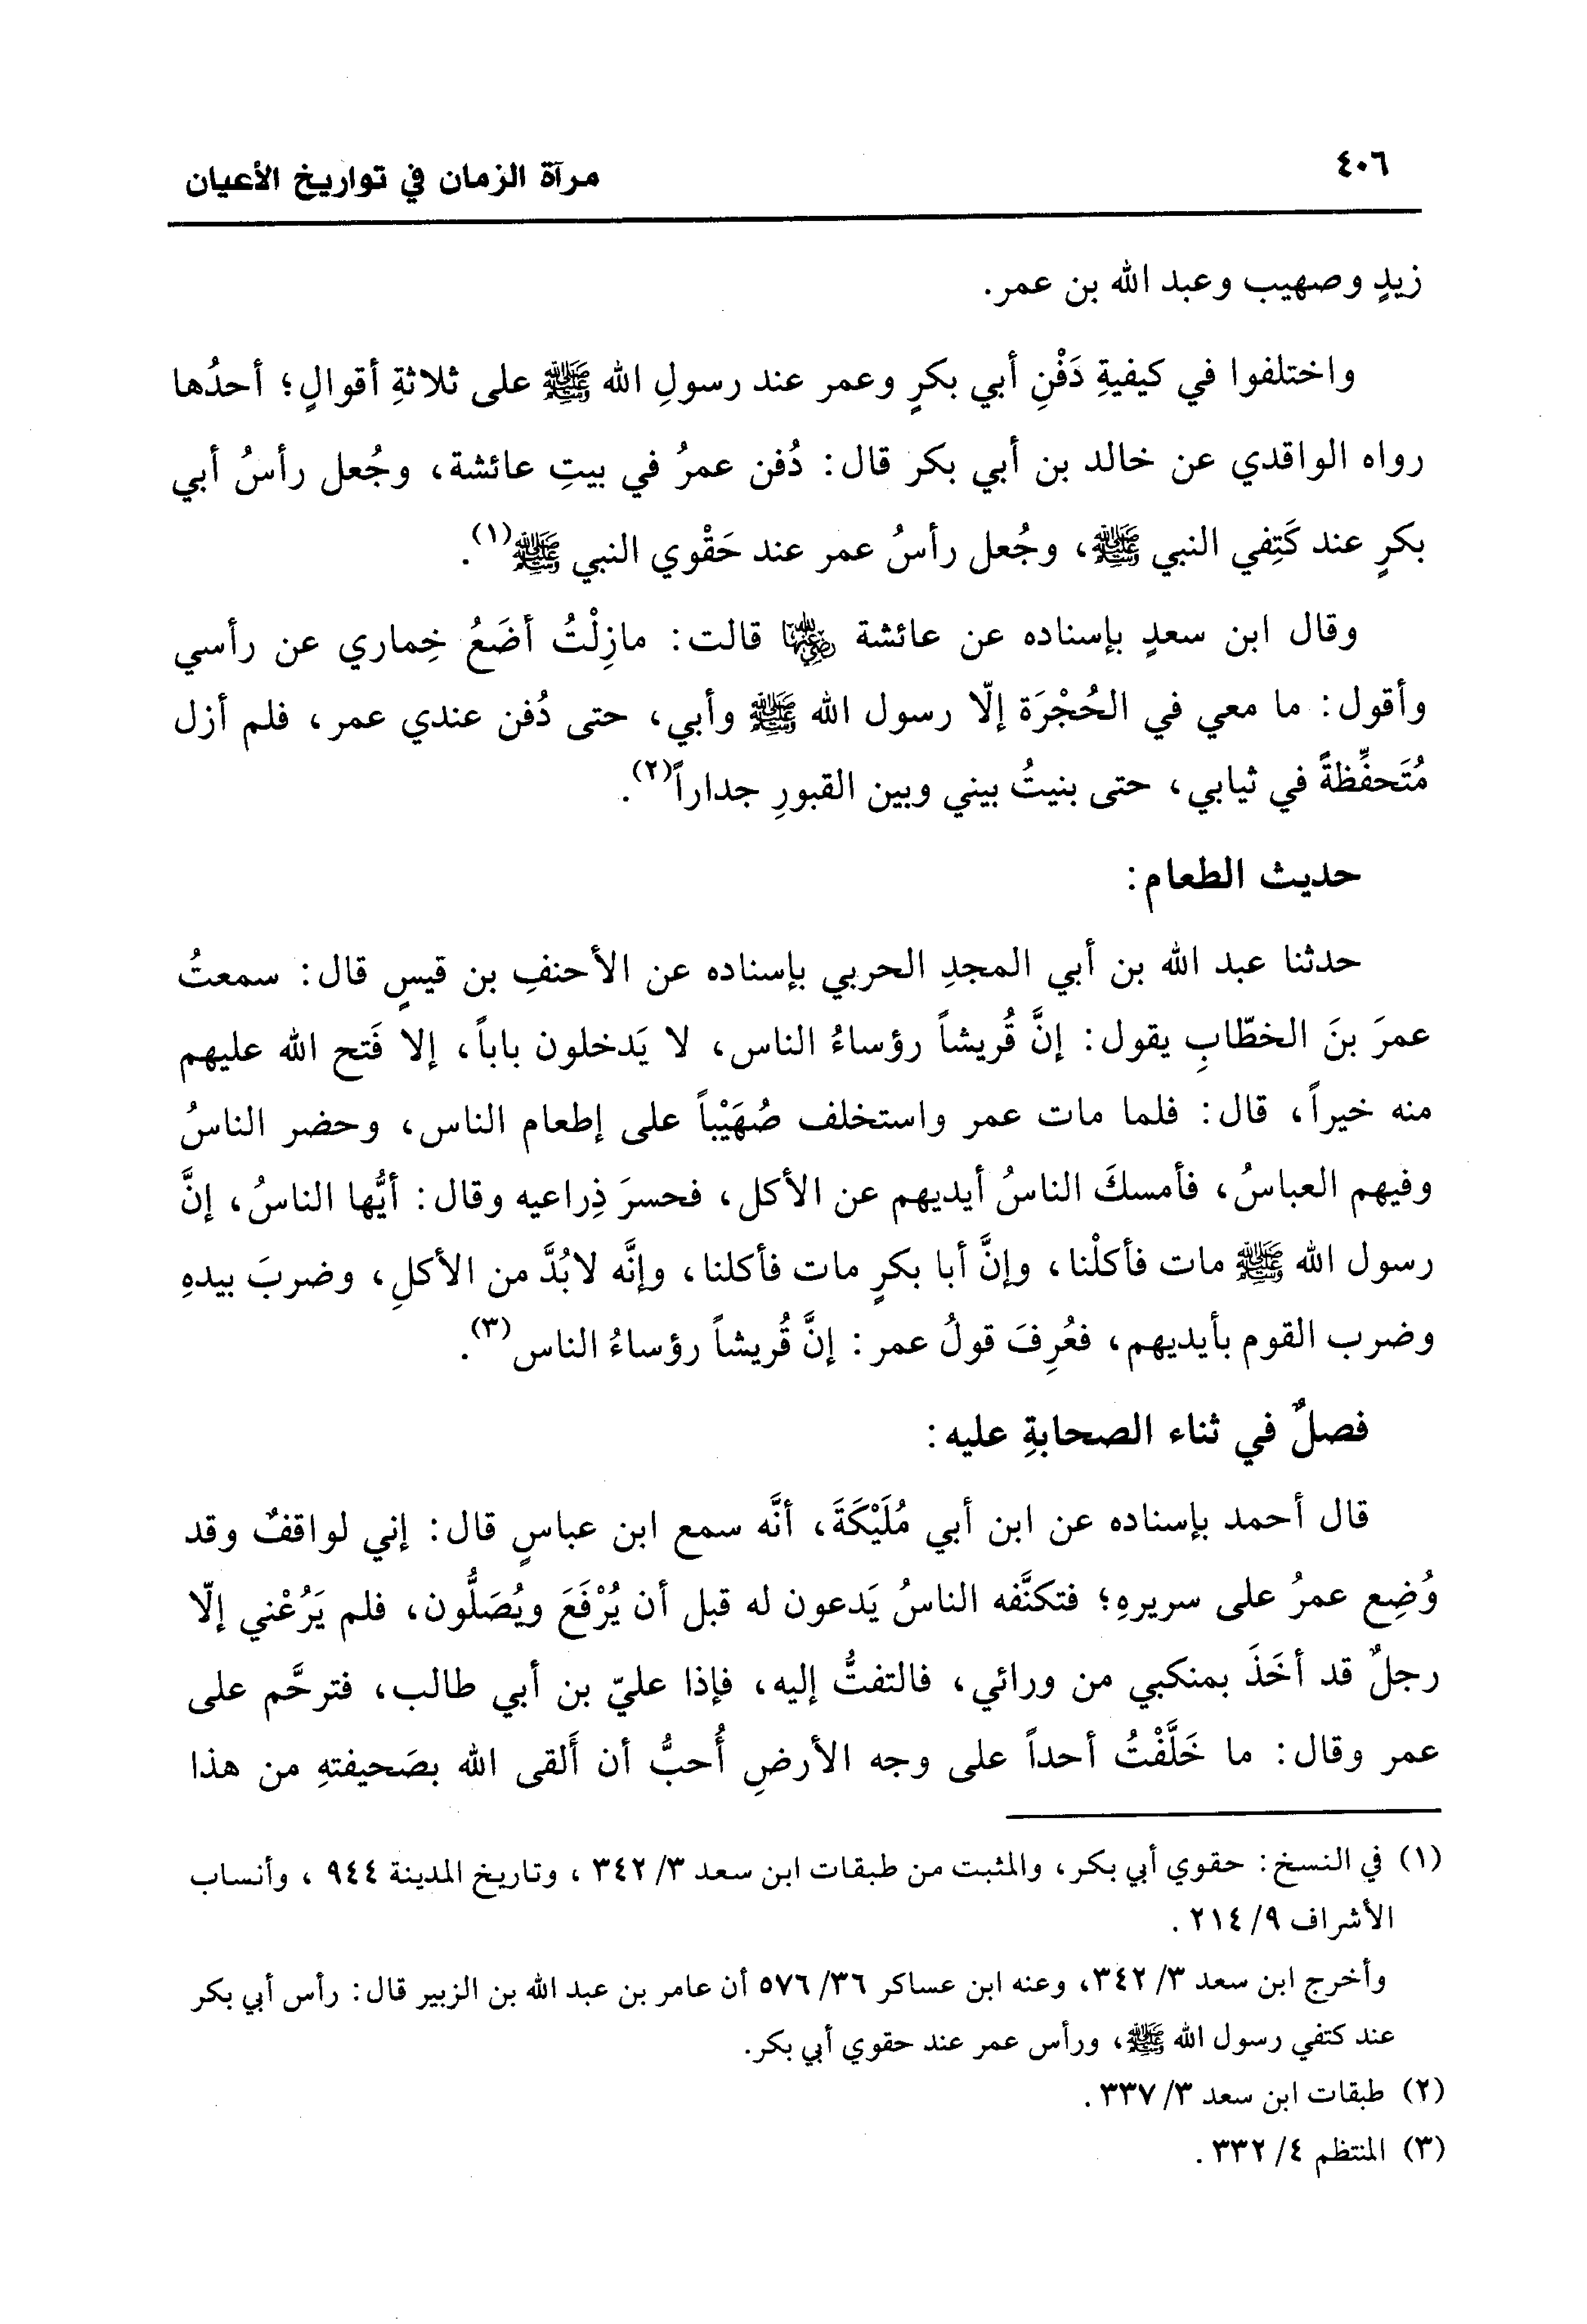 ٤٠٦
مرآة الزمان في تواريخ الأعيان
زيدٍ وصهيب وعبد الله بن عمر.
واختلفوا في كيفيةِ دَفْنِ أبي بكرٍ وعمر عند رسولِ الله ﷺ على ثلاثةِ أقوالٍ؛ أحدُها
رواه الواقدي عن خالد بن أبي بكر قال: دُفن عمرُ في بيتِ عائشة، وجُعل رأسُ أبي
بكرٍ عند كَتِفي النبي ﷺ، وجُعل رأسُ عمر عند حَقْوي النبي ﷺ(١).
وقال ابن سعدٍ بإسناده عن عائشة رضي الله عنها قالت: مازِلْتُ أضَعُ خِماري عن رأسي
وأقول: ما معي في الحُجْرَة إلّا رسول الله ﷺ وأبي، حتى دُفن عندي عمر، فلم أزل
مُتَحفِّظةً في ثيابي، حتى بنيتُ بيني وبين القبورِ جداراً(٢).
حديث الطعام:
حدثنا عبد الله بن أبي المجدِ الحربي بإسناده عن الأحنفِ بن قيسٍ قال: سمعتُ
عمرَ بنَ الخطّابِ يقول: إنَّ قُريشاً رؤساءُ الناس، لا يَدخلون باباً، إلا فَتح الله عليهم
منه خيراً، قال: فلما مات عمر واستخلف صُهَيْباً على إطعام الناس، وحضر الناسُ
وفيهم العباسُ، فأمسكَ الناسُ أيديهم عن الأكل، فحسرَ ذِراعيه وقال: أيُّها الناسُ، إنَّ
رسول الله ﷺ مات فأكلْنا، وإنَّ أبا بكرٍ مات فأكلنا، وإنَّه لابُدَّ من الأكلِ، وضربَ بيدهِ
وضرب القوم بأيديهم، فعُرِفَ قولُ عمر: إنَّ قُريشاً رؤساءُ الناس(٣).
فصلٌ في ثناء الصحابةِ عليه:
قال أحمد بإسناده عن ابن أبي مُلَيْكَةَ، أنَّه سمع ابن عباسٍ قال: إني لواقفٌ وقد
وُضِع عمرُ على سريرهِ؛ فتكنَّفه الناسُ يَدعون له قبل أن يُرْفَعَ ويُصَلُّون، فلم يَرُعْني إلّا
رجلٌ قد أخَذَ بمنكبي من ورائي، فالتفتُّ إليه، فإذا عليّ بن أبي طالب، فترحَّم على
عمر وقال: ما خَلَّفْتُ أحداً على وجه الأرضِ أُحبُّ أن أَلقى الله بصَحيفتهِ من هذا
(١) في النسخ: حقوي أبي بكر، والمثبت من طبقات ابن سعد ٣/ ٣٤٢ ، وتاريخ المدينة ٩٤٤ ، وأنساب
الأشراف ٩/ ٢١٤ .
وأخرج ابن سعد ٣/ ٣٤٢، وعنه ابن عساكر ٣٦/ ٥٧٦ أن عامر بن عبد الله بن الزبير قال: رأس أبي بكر
عند كتفي رسول الله ﷺ، ورأس عمر عند حقوي أبي بكر.
(٢) طبقات ابن سعد ٣/ ٣٣٧ .
(٣) المنتظم ٤/ ٣٣٢ .